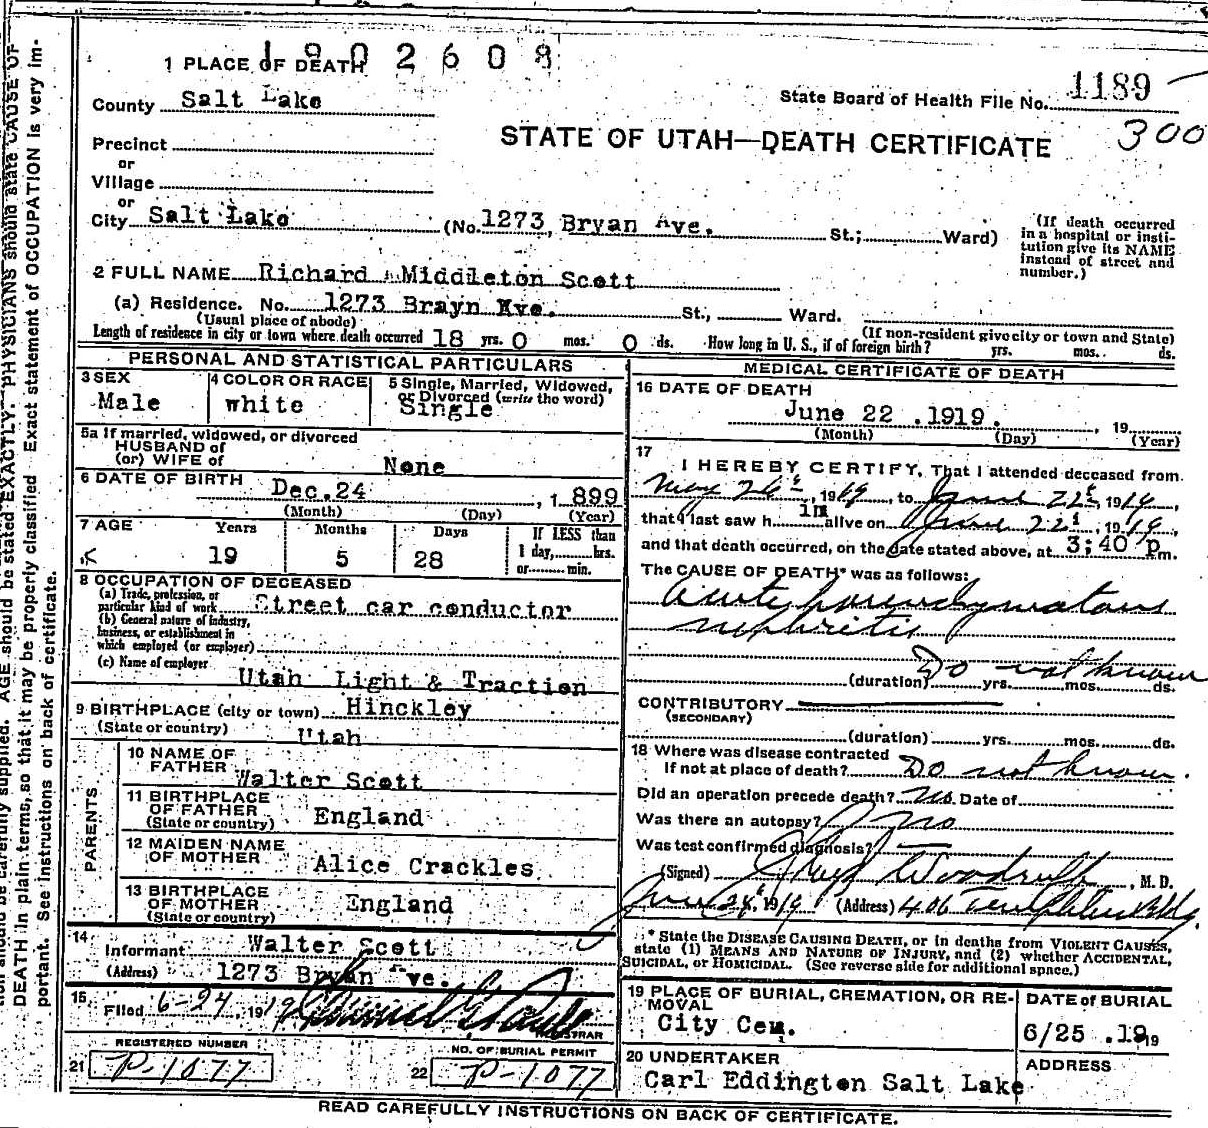 1902608
1 PLACE OF DEATH
County Salt Lake
State Board of Health File No. 1189
300
STATE OF UTAH—DEATH CERTIFICATE
Precinct
or
Village
or
City Salt Lake (No. 1273, Bryan Ave. St.; Ward)
(If death occurred in a hospital or institution give its NAME instead of street and number.)
2 FULL NAME Richard Middleton Scott
(a) Residence. No. 1273 Brayn Ave. St., Ward.
(Usual place of abode) (If non-resident give city or town and State)
Length of residence in city or town where death occurred 18 yrs. 0 mos. 0 ds. How long in U. S., if of foreign birth? yrs. mos. ds.
PERSONAL AND STATISTICAL PARTICULARS
3 SEX
Male
4 COLOR OR RACE
white
5 Single, Married, Widowed,
or Divorced (write the word)
Single
5a If married, widowed, or divorced
HUSBAND of
(or) WIFE of None
6 DATE OF BIRTH Dec. 24, 1899
(Month) (Day) (Year)
7 AGE Years Months Days If LESS than
19 5 28 1 day, hrs.
or min.
8 OCCUPATION OF DECEASED
(a) Trade, profession, or
particular kind of work Street car conductor
(b) General nature of industry,
business, or establishment in
which employed (or employer)
(c) Name of employer
Utah Light & Traction
9 BIRTHPLACE (city or town) Hinckley
(State or country) Utah
PARENTS
10 NAME OF
FATHER Walter Scott
11 BIRTHPLACE
OF FATHER
(State or country) England
12 MAIDEN NAME
OF MOTHER Alice Crackles
13 BIRTHPLACE
OF MOTHER
(State or country) England
14
Informant Walter Scott
(Address) 1273 Bryan Ave.
15
Filed 6-24 1919
REGISTRAR
REGISTERED NUMBER
21 P-1077
NO. OF BURIAL PERMIT
22 P-1077
MEDICAL CERTIFICATE OF DEATH
16 DATE OF DEATH
June 22 .1919. , 19
(Month) (Day) (Year)
17
I HEREBY CERTIFY, That I attended deceased from
May 26, 1919, to June 22, 1919,
that I last saw him alive on June 22, 1919,
and that death occurred, on the date stated above, at 3;40 Pm.
The CAUSE OF DEATH* was as follows:
Acute parenchymatous
nephritis
Do not know
(duration) yrs. mos. ds.
CONTRIBUTORY
(SECONDARY)
(duration) yrs. mos. ds.
18 Where was disease contracted
If not at place of death? Do not know.
Did an operation precede death? no Date of
Was there an autopsy? no
Was test confirmed diagnosis?
(Signed) Woodruff, M. D.
June 24, 1919 (Address) 406 Templeton Bldg.
* State the DISEASE CAUSING DEATH, or in deaths from VIOLENT CAUSES,
state (1) MEANS AND NATURE OF INJURY, and (2) whether ACCIDENTAL,
SUICIDAL, or HOMICIDAL. (See reverse side for additional space.)
19 PLACE OF BURIAL, CREMATION, OR RE-
MOVAL
City Cem.
DATE of BURIAL
6/25 .1919
20 UNDERTAKER
Carl Eddington Salt Lake
ADDRESS
READ CAREFULLY INSTRUCTIONS ON BACK OF CERTIFICATE.
supplied. AGE should be stated EXACTLY. PHYSICIANS should state CAUSE OF
DEATH in plain terms, so that it may be properly classified. Exact statement of OCCUPATION is very im-
portant. See instructions on back of certificate.